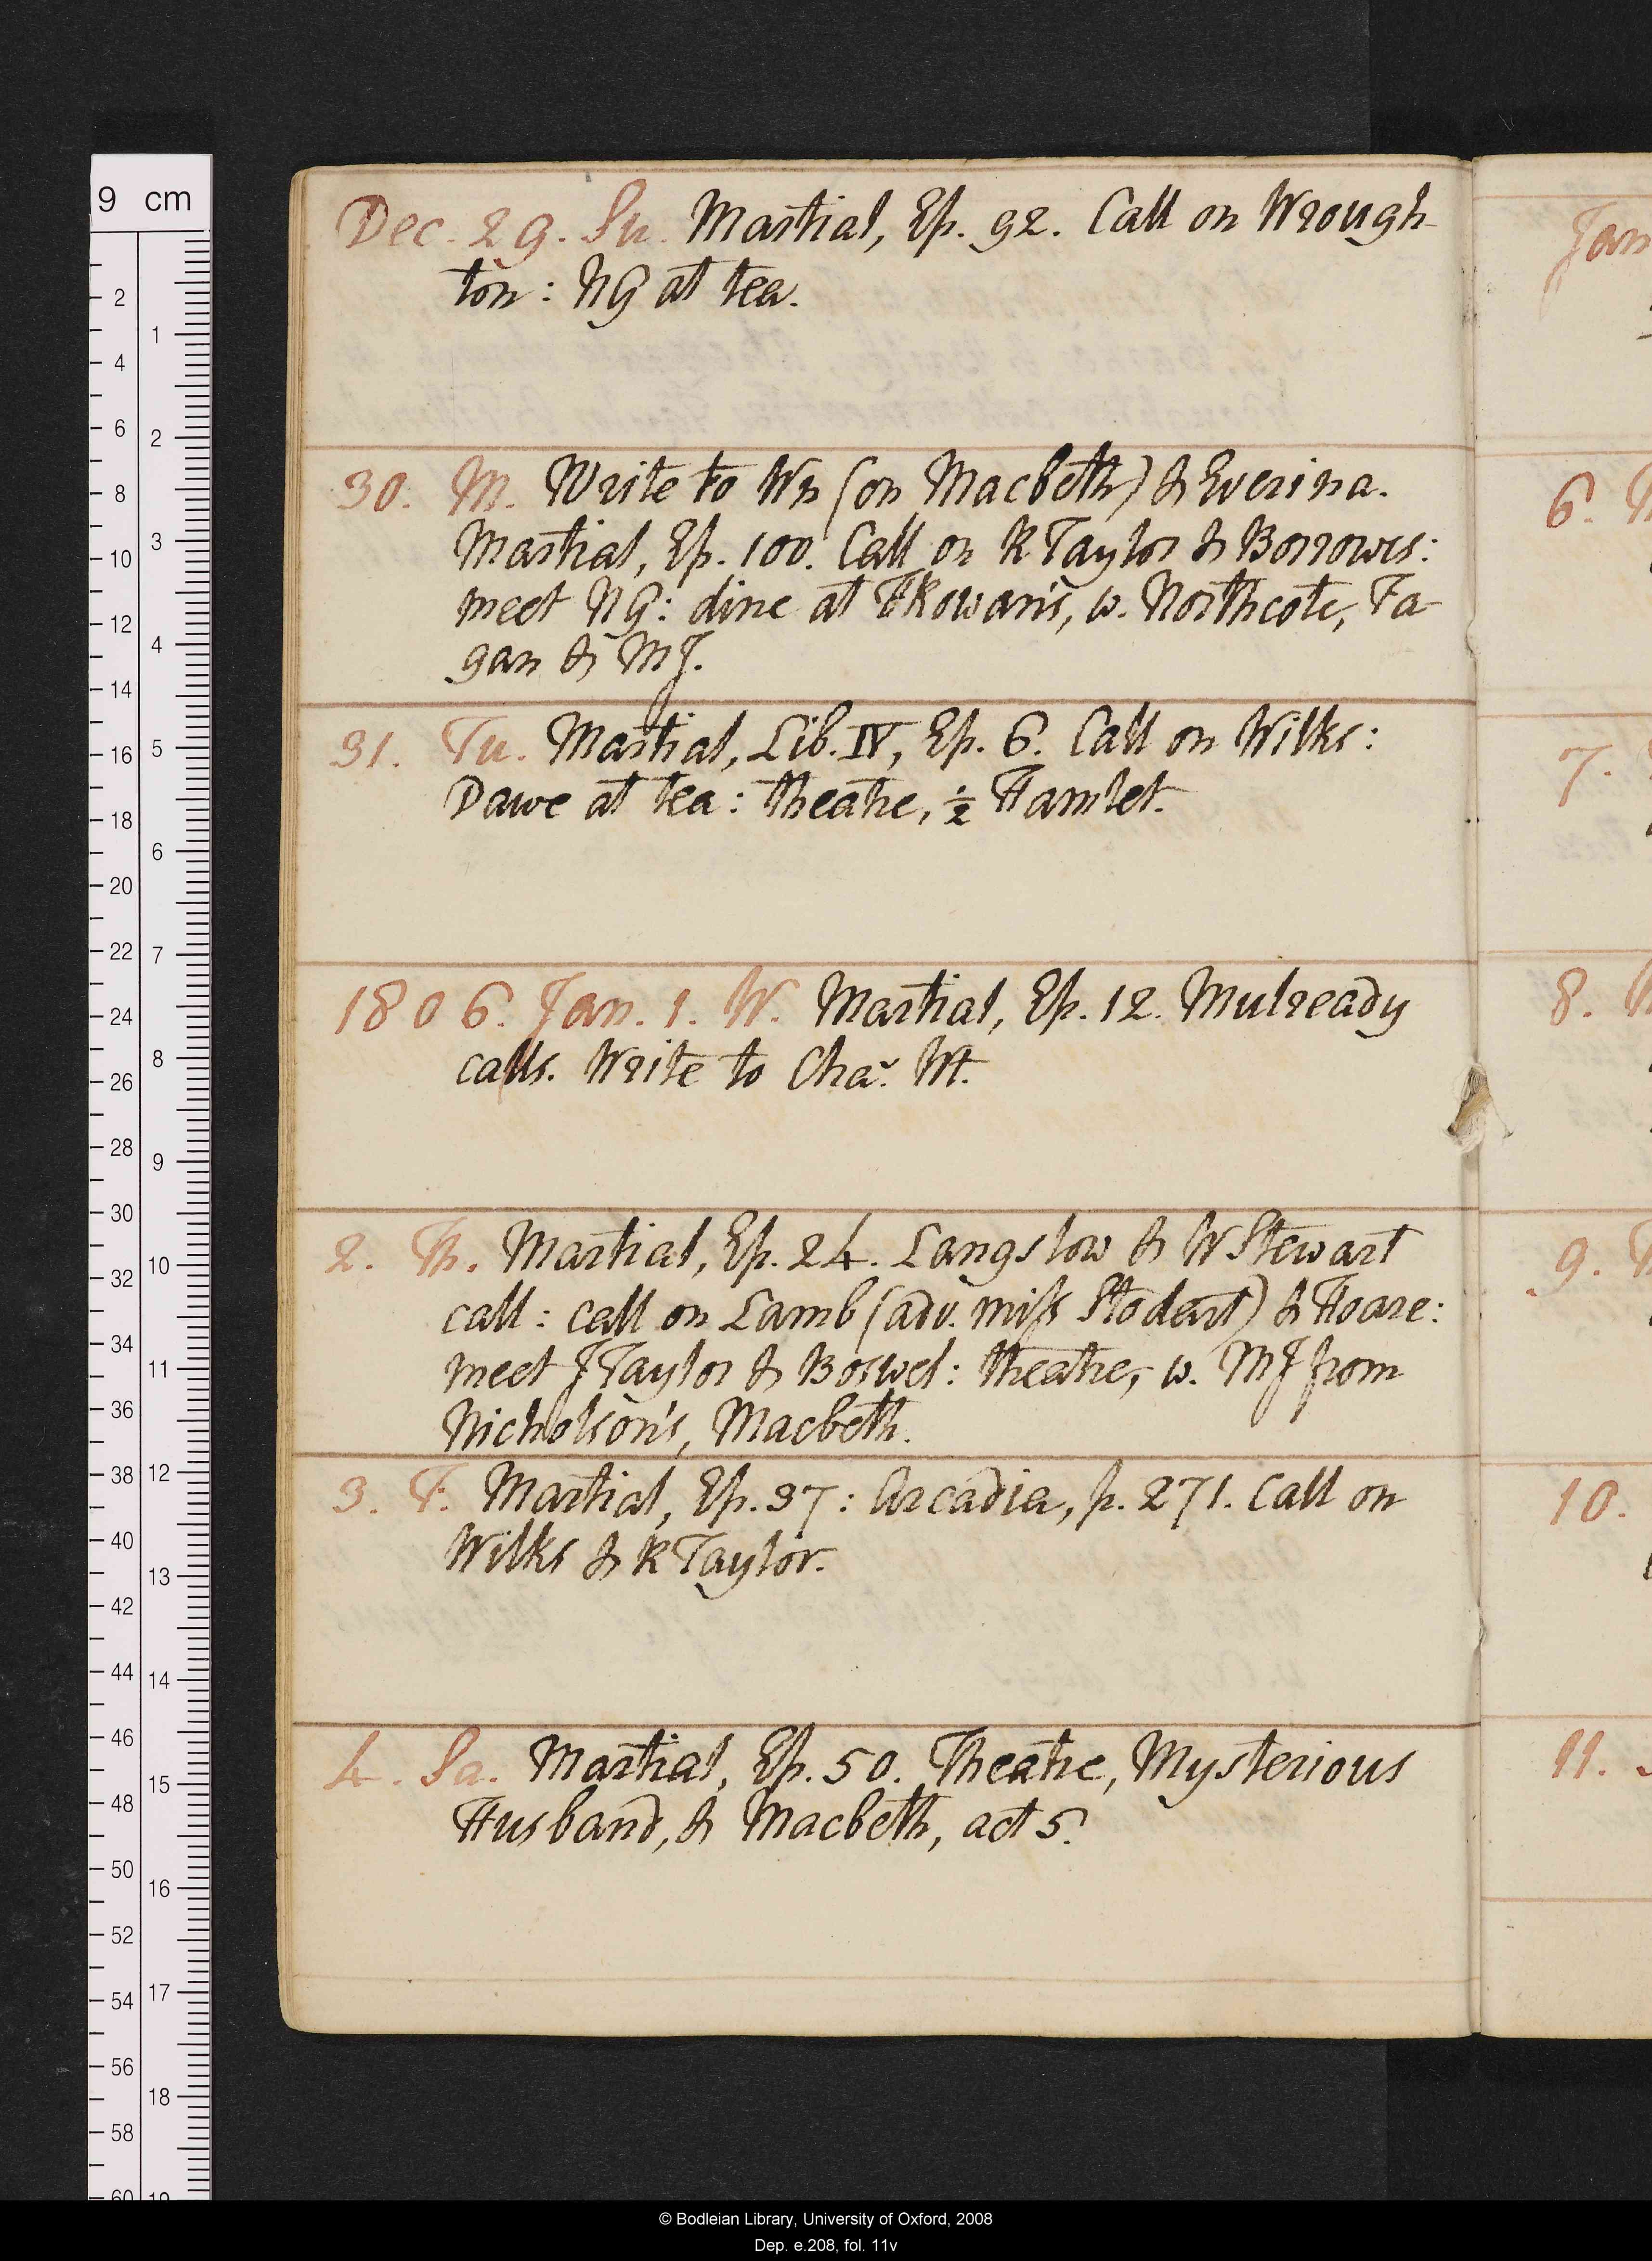 Dec. 29. Su. Martial, Ep. 92. Call on Wrough-
ton: NG at tea.
30. M. Write to Wn (on Macbeth) & Everina.
Martial, Ep. 100. Call on R Taylor & Borrows:
meet NG: dine at TRowan's, w. Northcote, Fa-
gan & MJ.
31. Tu. Martial, Lib. IV, Ep. 6. Call on Wilks:
Dawe at tea: theatre, ½ Hamlet.
1806. Jan. 1. W. Martial, Ep. 12. Mulready
calls. Write to Chas. Wt.
2. Th. Martial, Ep. 24. Langslow & W Stewart
call: call on Lamb (adv. miss Stodart) & Hoare:
meet J Taylor & Boswel: theatre, w. MJ from
Nicholson's, Macbeth.
3. F. Martial, Ep. 37: Arcadia, p. 271. Call on
Wilks & R Taylor.
4. Sa. Martial, Ep. 50. Theatre, Mysterious
Husband, & Macbeth, act 5.
Jan
6.
7.
8.
9.
10.
11.
9 cm
2
4
6
8
10
12
14
16
18
20
22
24
26
28
30
32
34
36
38
40
42
44
46
48
50
52
54
56
58
60
1
2
3
4
5
6
7
8
9
10
11
12
13
14
15
16
17
18
19
© Bodleian Library, University of Oxford, 2008
Dep. e.208, fol. 11v